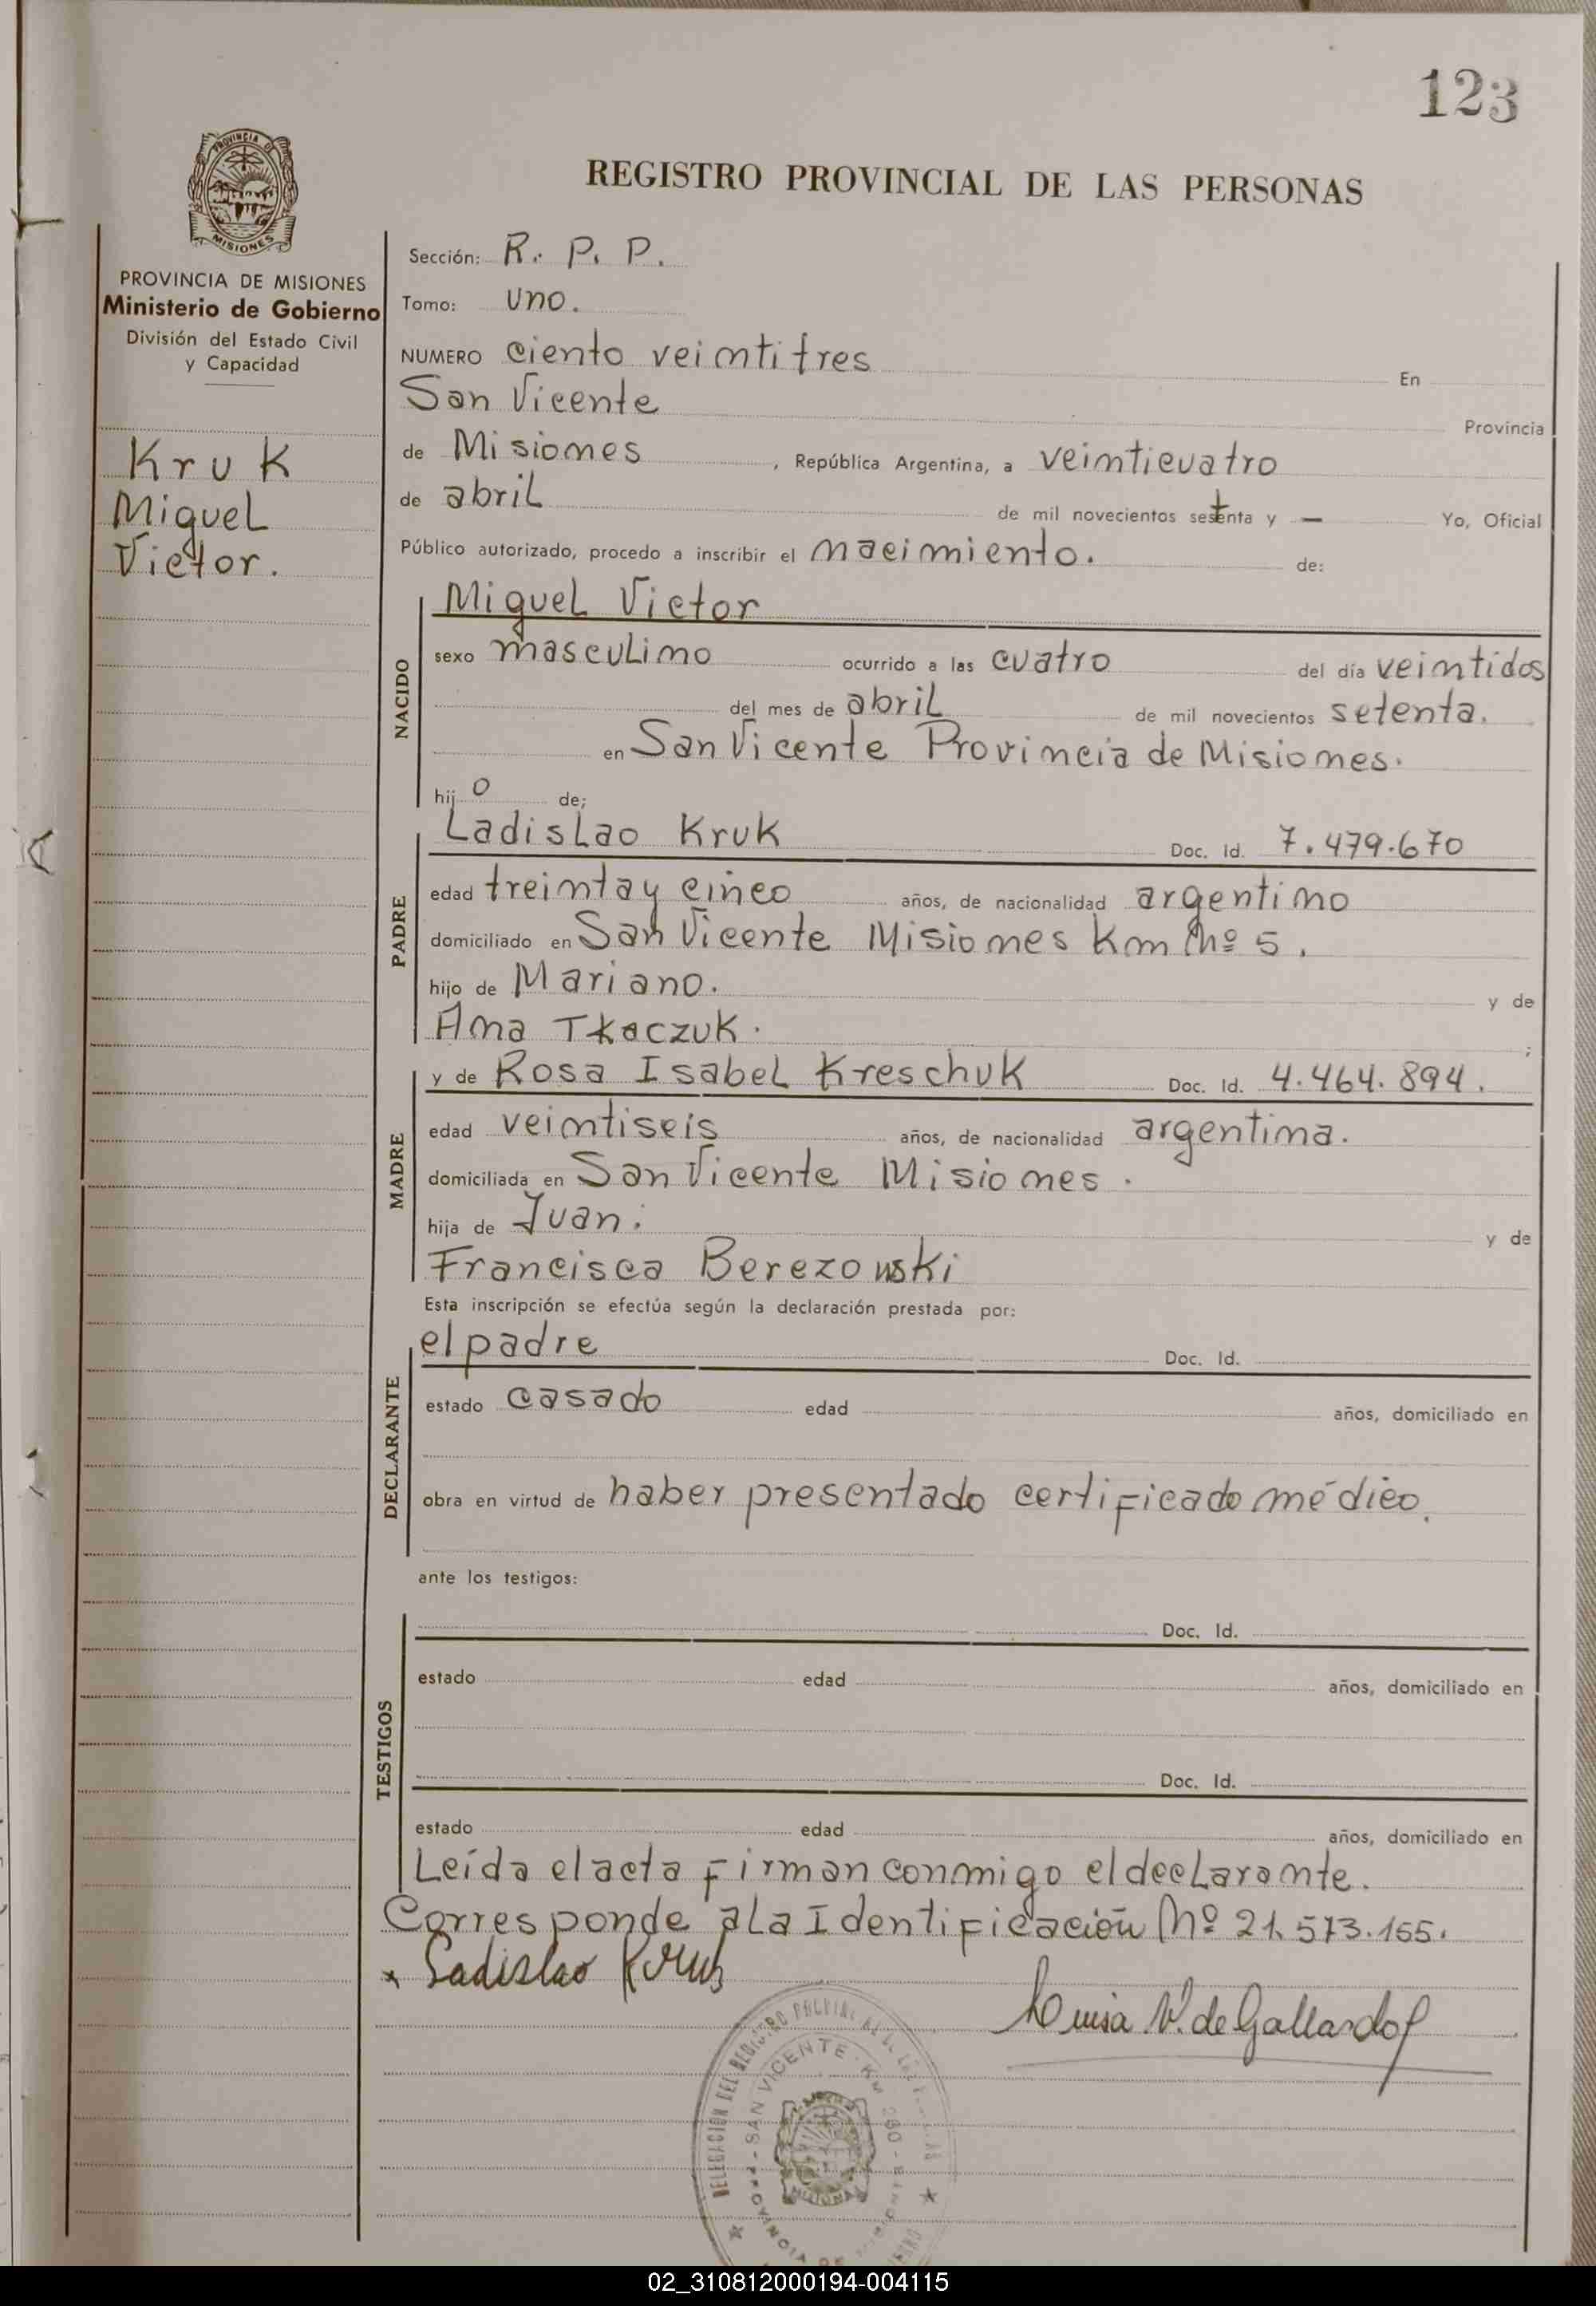 123
REGISTRO PROVINCIAL DE LAS PERSONAS
PROVINCIA DE
MISIONES
PROVINCIA DE MISIONES
Ministerio de Gobierno
División del Estado Civil
y Capacidad
Kruk
Miguel
Victor.
Sección: R. P. P.
Tomo: uno.
NUMERO ciento veintitres En
San Vicente Provincia
de Misiones , República Argentina, a veinticuatro
de abril de mil novecientos setenta y — Yo, Oficial
Público autorizado, procedo a inscribir el nacimiento. de:
NACIDO
Miguel Victor
sexo masculino ocurrido a las cuatro del día veintidos
del mes de abril de mil novecientos setenta.
en San Vicente Provincia de Misiones.
hij o de;
PADRE
Ladislao Kruk Doc. Id. 7.479.670
edad treinta y cinco años, de nacionalidad argentino
domiciliado en San Vicente Misiones Km Nº 5.
hijo de Mariano. y de
Ana Tkaczuk. ;
MADRE
y de Rosa Isabel Kreschuk Doc. Id. 4.464.894.
edad veintiseis años, de nacionalidad argentina.
domiciliada en San Vicente Misiones.
hija de Juan. y de
Francisca Berezowski
Esta inscripción se efectúa según la declaración prestada por:
DECLARANTE
el padre Doc. Id.
estado casado edad años, domiciliado en
obra en virtud de haber presentado certificado médico.
ante los testigos:
TESTIGOS
Doc. Id.
estado edad años, domiciliado en
Doc. Id.
estado edad años, domiciliado en
Leída el acta firman conmigo el declarante.
Corresponde a la Identificación Nº 21.573.155.
Ladislao Kruk
Luisa V. de Gallardo
DELEGACION DEL REGISTRO
SAN VICENTE
02_310812000194-004115